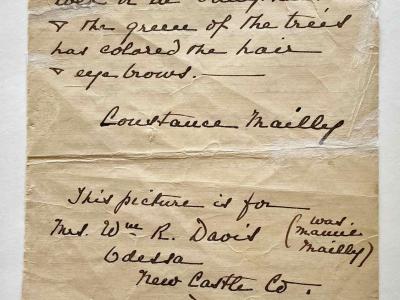 & the green of the trees
has colored the hair
& eye brows. —
Constance Mailly
This picture is for
Mrs. Wm R. Davis (was Mamie Mailly)
Odessa
New Castle Co.